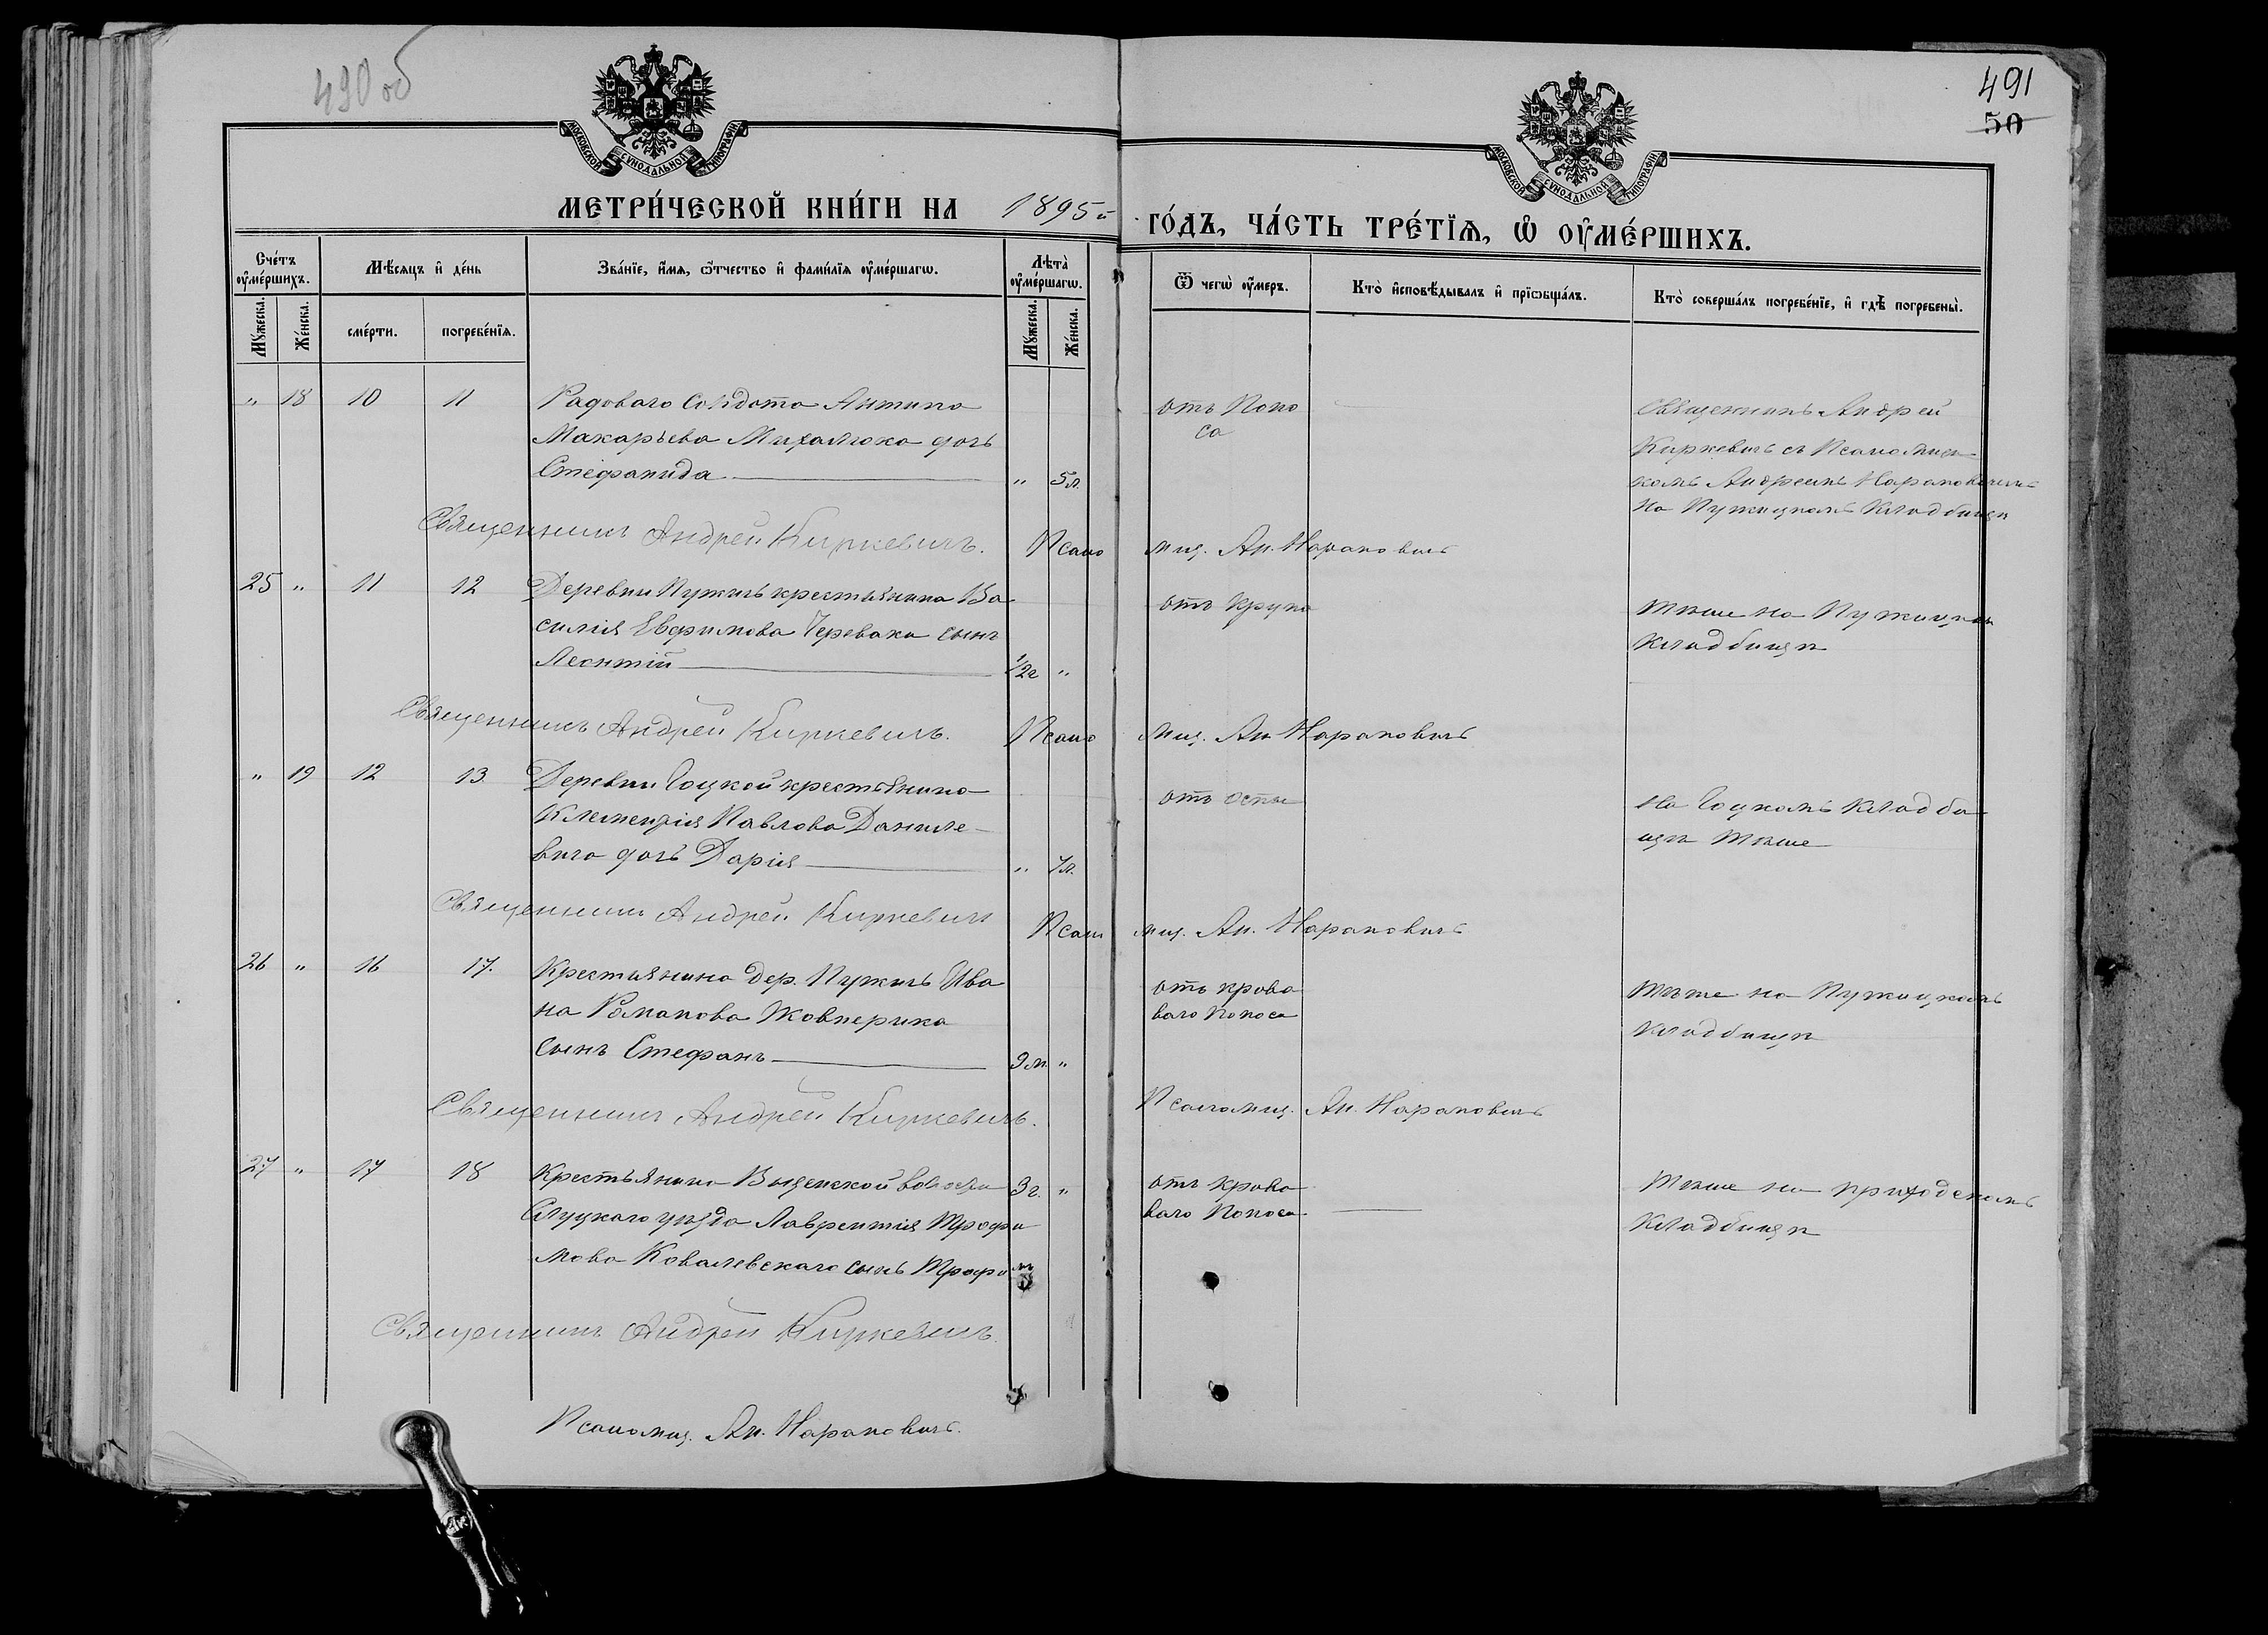 490 об
491
50
МОСКОВСКОЙ СѴНОДАЛЬНОЙ ТИПОГРАФІИ
МОСКОВСКОЙ СѴНОДАЛЬНОЙ ТИПОГРАФІИ
МЕТРИ́ЧЕСКОЙ КНИ́ГИ НА 1895й ГО́ДЪ, ЧА́СТЬ ТРЕ́ТІѦ, Ѡ ОУМЕ́РШИХЪ.
Сче́тъ оумершихъ.
Мѣсяцъ и день
Зва́ніе, имя, отчество и фамилія оумершагѡ.
Лѣта оумершагѡ.
Ѿ чегѡ оумеръ.
Кто исповѣдывалъ и пріѡбщалъ.
Кто совершалъ погребеніе, и гдѣ погребены.
Мужеска.
Женска.
смерти.
погребенія.
Мужеска.
Женска.
" 18 10 11 Рядоваго Солдата Антипа
Макарьева Михалюка дочь
Стефанида " 5 л.
отъ Поно
са
Священникъ Андрей
Киркевичъ съ Псаломщи-
комъ Андреемъ Нарановичемъ
на Пужицкомъ Кладбищѣ
Священникъ Андрей Киркевичъ. Псало мщ. Ан. Нарановичъ
25 " 11 12 Деревни Пужичъ крестьянина Ва
силія Евфимова Черевака сынъ
Леонтій 1/2 г "
отъ Крупа
Тѣже на Пужицком
Кладбищѣ
Священникъ Андрей Киркевичъ. Псало мщ. Ан Нарановичъ
" 19 12 13 Деревни Гоцкой крестьянина
Климентія Павлова Даниле-
вича дочь Дарія " 7 л.
отъ оспы
На Гоцкомъ Кладби
щѣ Тѣже
Священникъ Андрей Киркевичъ Псало мщ. Ан. Нарановичъ
26 " 16 17. Крестьянина дер. Пужичъ Ива
на Романова Жовнерика
сынъ Стефанъ 9 м. "
отъ крова
ваго Поноса
Тѣже на Пужицкомъ
Кладбищѣ
Священникъ Андрей Киркевичъ. Псаломщ. Ан. Нарановичъ
27 " 17 18 Крестьянина Вызенской волости 3 г. "
Слуцкаго уѣзда Лаврентія Трофи
мова Ковалевскаго сынъ Трофимъ
отъ крова
ваго Поноса
Тѣже на приходскомъ
Кладбищѣ
Священникъ Андрей Киркевичъ.
Псаломщ. Ан. Нарановичъ.